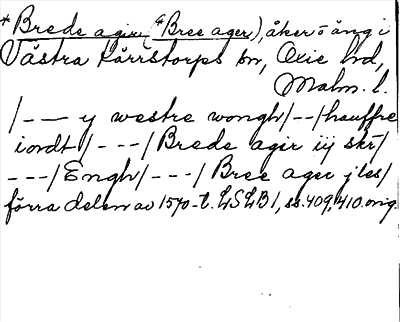 *Brede agir (*Bree ager), åker o äng i
Västra Kärrstorps sn, Oxie hd,
Malm. l.
/ — — y westre wongh / — — / hauffre
iordt / - - - / Brede agir iij skr /
- - - / Engh / - - - / Bree ager j les /
förra delen av 1570-t. LSLB 1, ss. 409, 410. orig